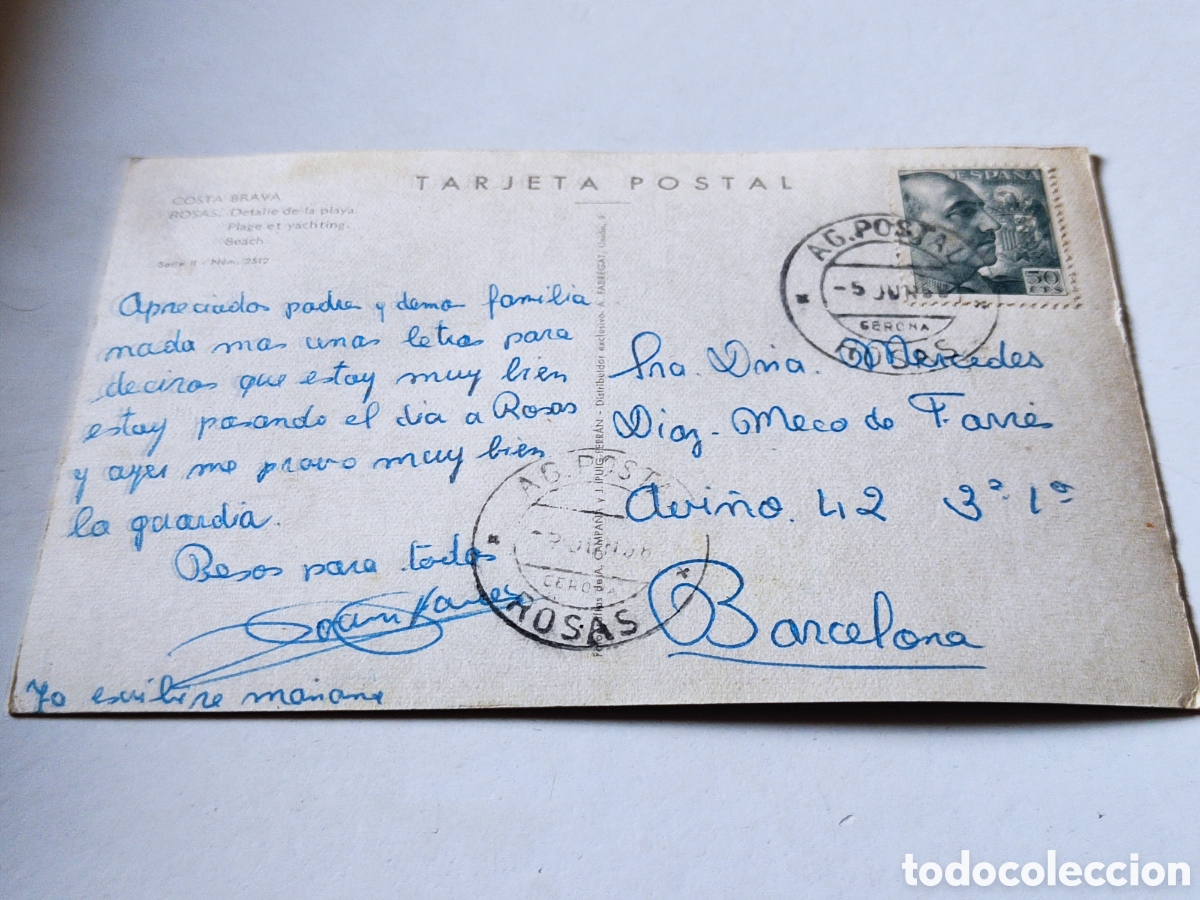 TARJETA POSTAL
COSTA BRAVA
ROSAS. Detalle de la playa.
Plage et yachting.
Beach
Serie II - Núm. 2512
Apreciados padres y demas familia
nada mas unas letras para
deciros que estoy muy bien
estoy pasando el dia a Rosas
y ayer me provo muy bien
la guardia.
Besos para todos
Yo escribire mañana
A. CAMPAÑÁ y J. PUIG-FERRÁN - Distribuidor exclusivo. A. FABREGAT,
ESPAÑA
50
CTS
AG. POSTAL
-5 JUN
GERONA
ROSAS
Sra. Dña. Mercedes
Diaz-Meco de Farrés
Aviño. 42 3º. 1ª
Barcelona
AG. POSTAL
GERONA
ROSAS
todocoleccion